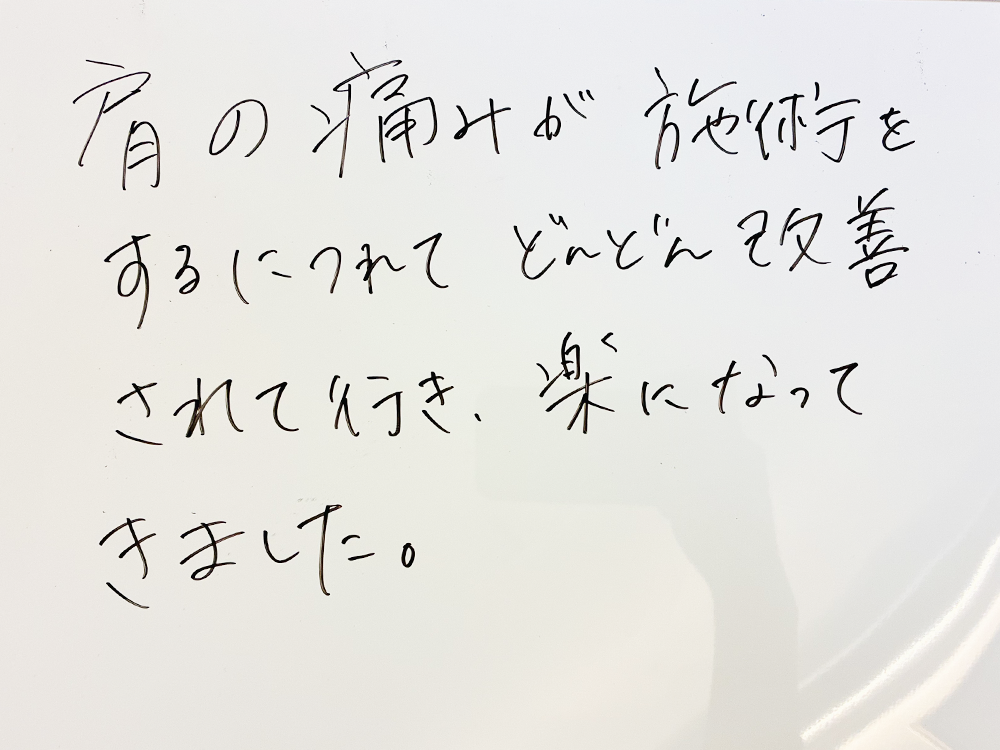 肩の痛みが施術を
するにつれてどんどん改善
されて行き、楽になって
きました。